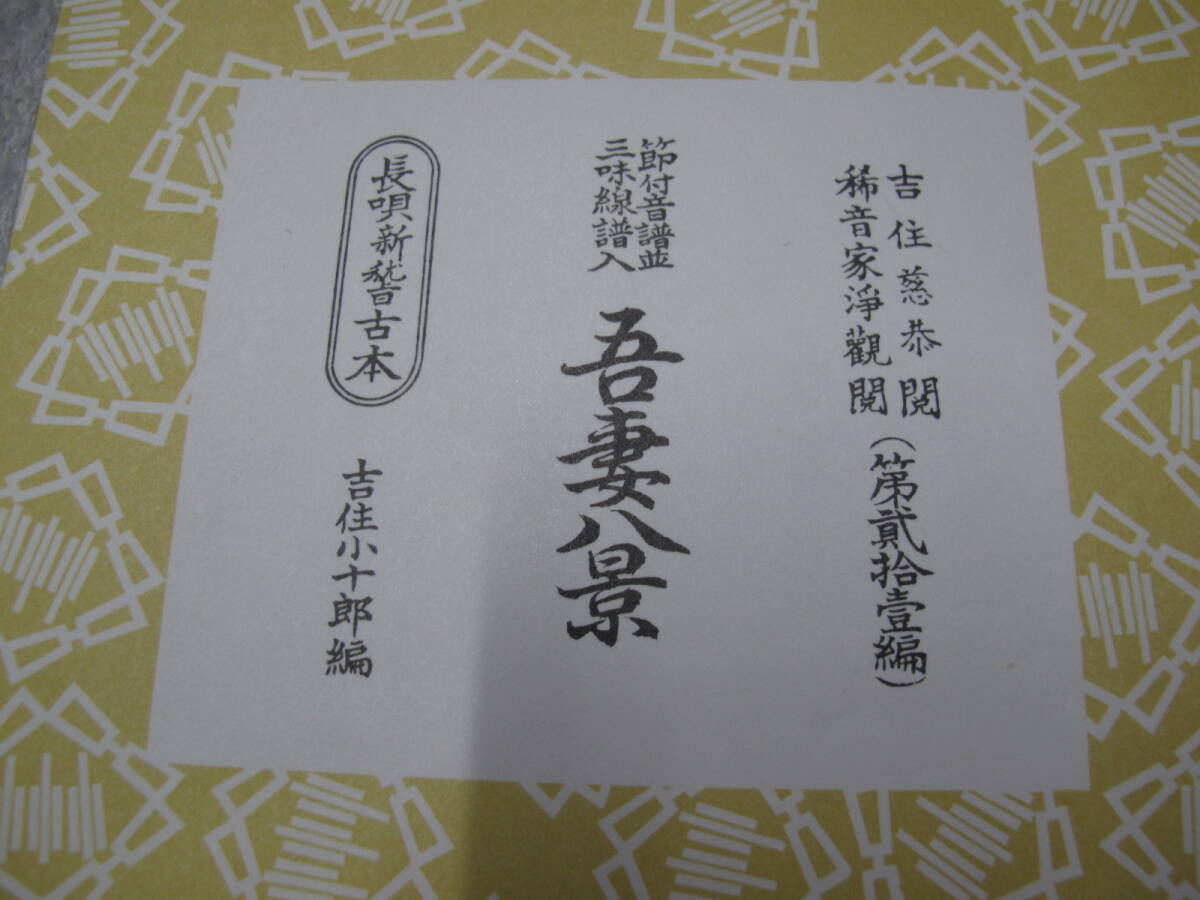 吉住慈恭閲
稀音家淨觀閲
（第貳拾壹編）
節付音譜並
三味線譜入
吾妻八景
長唄新稽古本
吉住小十郎編